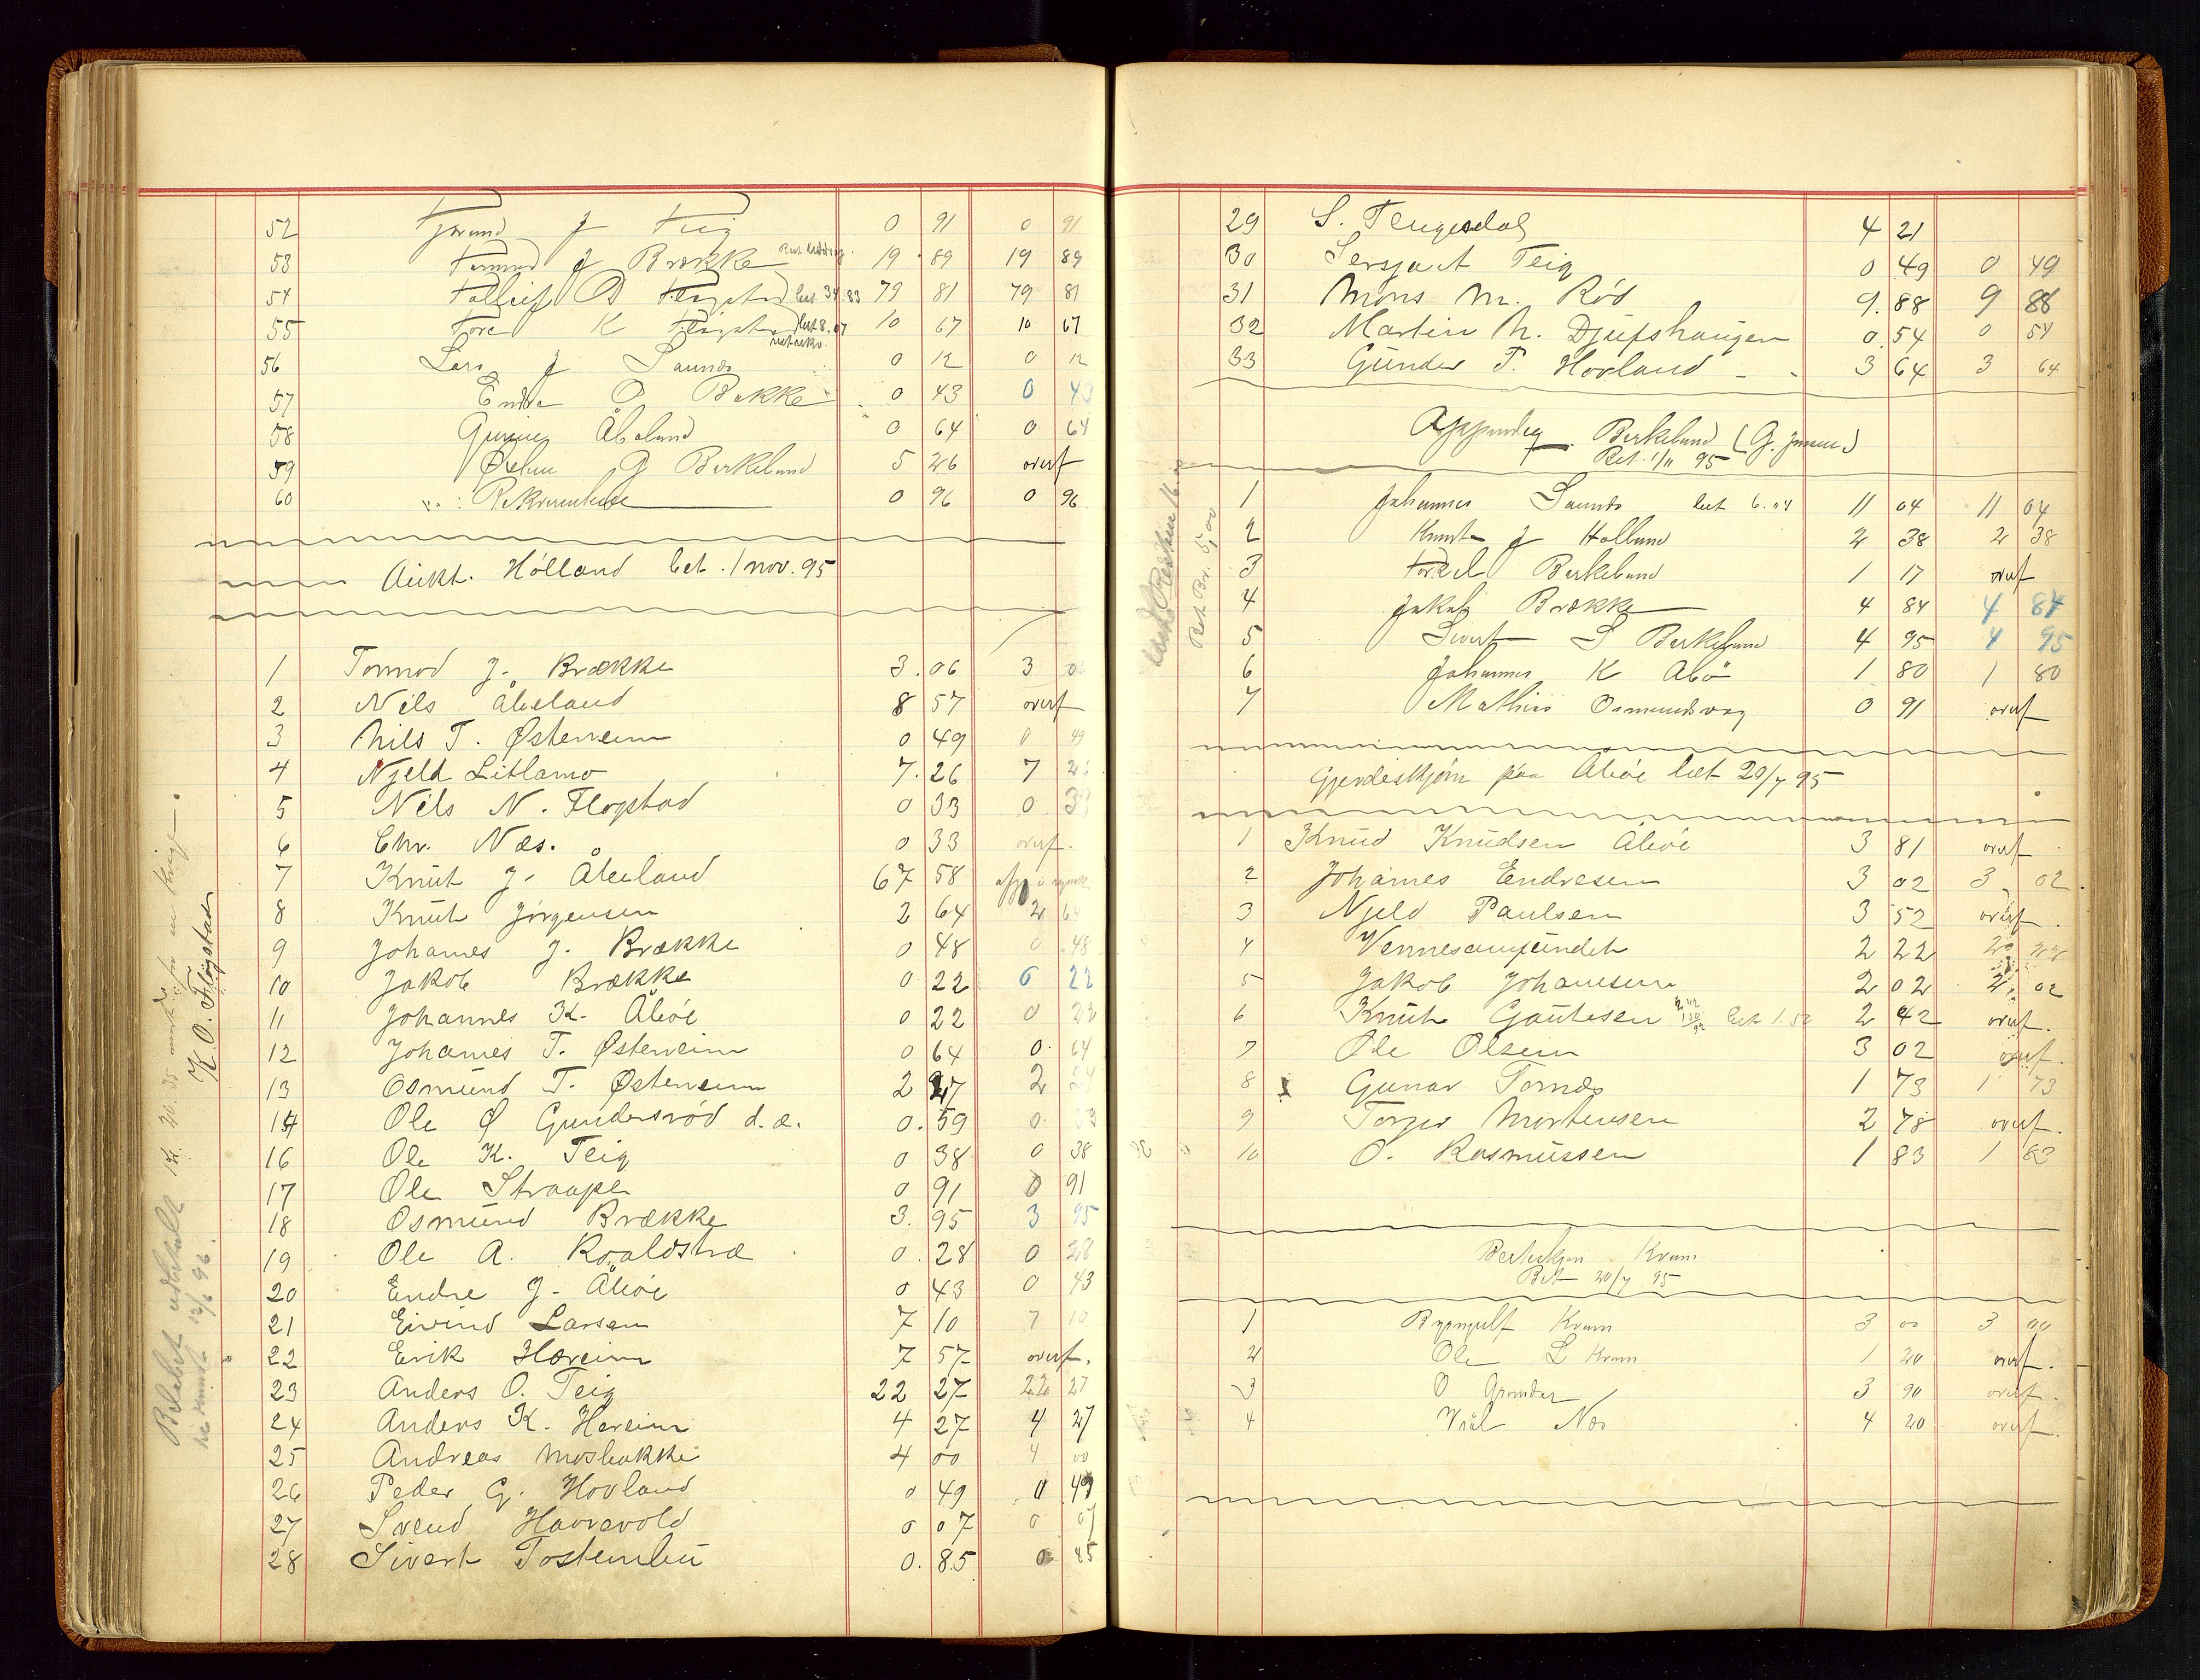 52 J Teig 0 91 0 91
53 Tormod J Brække 19 89 19 89
54 Tolleif O Flogstad bet. 34.83 79 81 79 81
55 Tore K Flogstad bet 8.07 10 67 10 67
56 Lars J Saunds 0 12 0 12
57 Endre O Bakke 0 43 0 43
58 Abeland 0 64 0 64
59 G Berkeland 5 26 overf
60 0 96 0 96
Aukt. Hölland bet. 1 nov. 95
1 Tormod J. Brække 3.06 3
2 Nils Åbeland 8 57 overf
3 Nils T. Østerveim 0 49 0 49
4 Njeld Litlamo 7.26 7 26
5 Nils N. Flogstad 0 33 0 33
6 Chr. Næs. 0 33 overf.
7 Knut J. Åbeland 67 58
8 Knut Jörgensen 2 64 2 64
9 Johannes J. Brække 0 48 0 48
10 Jakob Brække 0 22 0 22
11 Johannes K. Åböe 0 22 0 22
12 Johannes T. Østerveim 0 64 0. 64
13 Osmund T. Østerveim 2 27 2
15 Ole Ø Gundersröd d.æ. 0.59 0.
16 Ole K. Teig 0 38 0 38
17 Ole Straape 0 91 0 91
18 Osmund Brække 3. 95 3 95
19 Ole A. Roaldstvæ 0 28 0 28
20 Endre J. Åböe 0 43 0 43
21 Eivind Larsen 7 10 7 10
22 Erik Hæreim 7 57 overf.
23 Anders O. Teig 22 27 22 27
24 Anders K. Hereim 4 27 4 27
25 Andreas Mosbakke 4 00 4 00
26 Peder G. Hovland 0 49 0 49
27 Svend Havrevold 0 07 0 07
28 Sivert Tostenbu 0.85 0 85
K. O. Flogstad
29 S. Tengesdal 4 21
30 Sersjant Teig 0 49 0 49
31 Mons M. Röd 9.88 9 88
32 Martin N. Djufshaugen 0.54 0 54
33 Gunder P. Hovland 3 64 3 64
Berkeland (G. Jensen)
Bet. 1/11 95
Bet. Br. 5,00
1 Johannes Saunds bet 6.04 11 04 11 04
2 Knut J Hølland 2 38 2 38
3 Torkel Berkeland 1 17 overf
4 Jakob Brække 4 84 4 84
5 Sivert S Berkeland 4 95 4 95
6 Johannes K Abö 1 80 1 80
7 Mathias Osmundsvag 0 91 overf
Gjerdeskjön paa Åböe bet 20/7 95
1 Knud Knudsen Åböe 3 81 overf
2 Johannes Endresen 3 02 3 02
3 Njeld Paulsen 3 52 overf.
4 Vennesamfundet 2 22 2 22
5 Jakob Johannesen 2 02 2 02
6 Knut Gautesen bet 1.52 2 42 overf.
7 Ole Olsen 3 02 overf.
8 Gunar Tornæs 1 73 1 73
9 Torger Mortensen 2 78 overf.
10 O. Rasmussen 1 83 1 83
Kvam
Bet 20/7 95
1 Brynjulf Kvam 3 00 3 00
2 Ole L Kvam 1 20 overf.
3 O 3 90 overf.
4 Næs 4 20 overf.